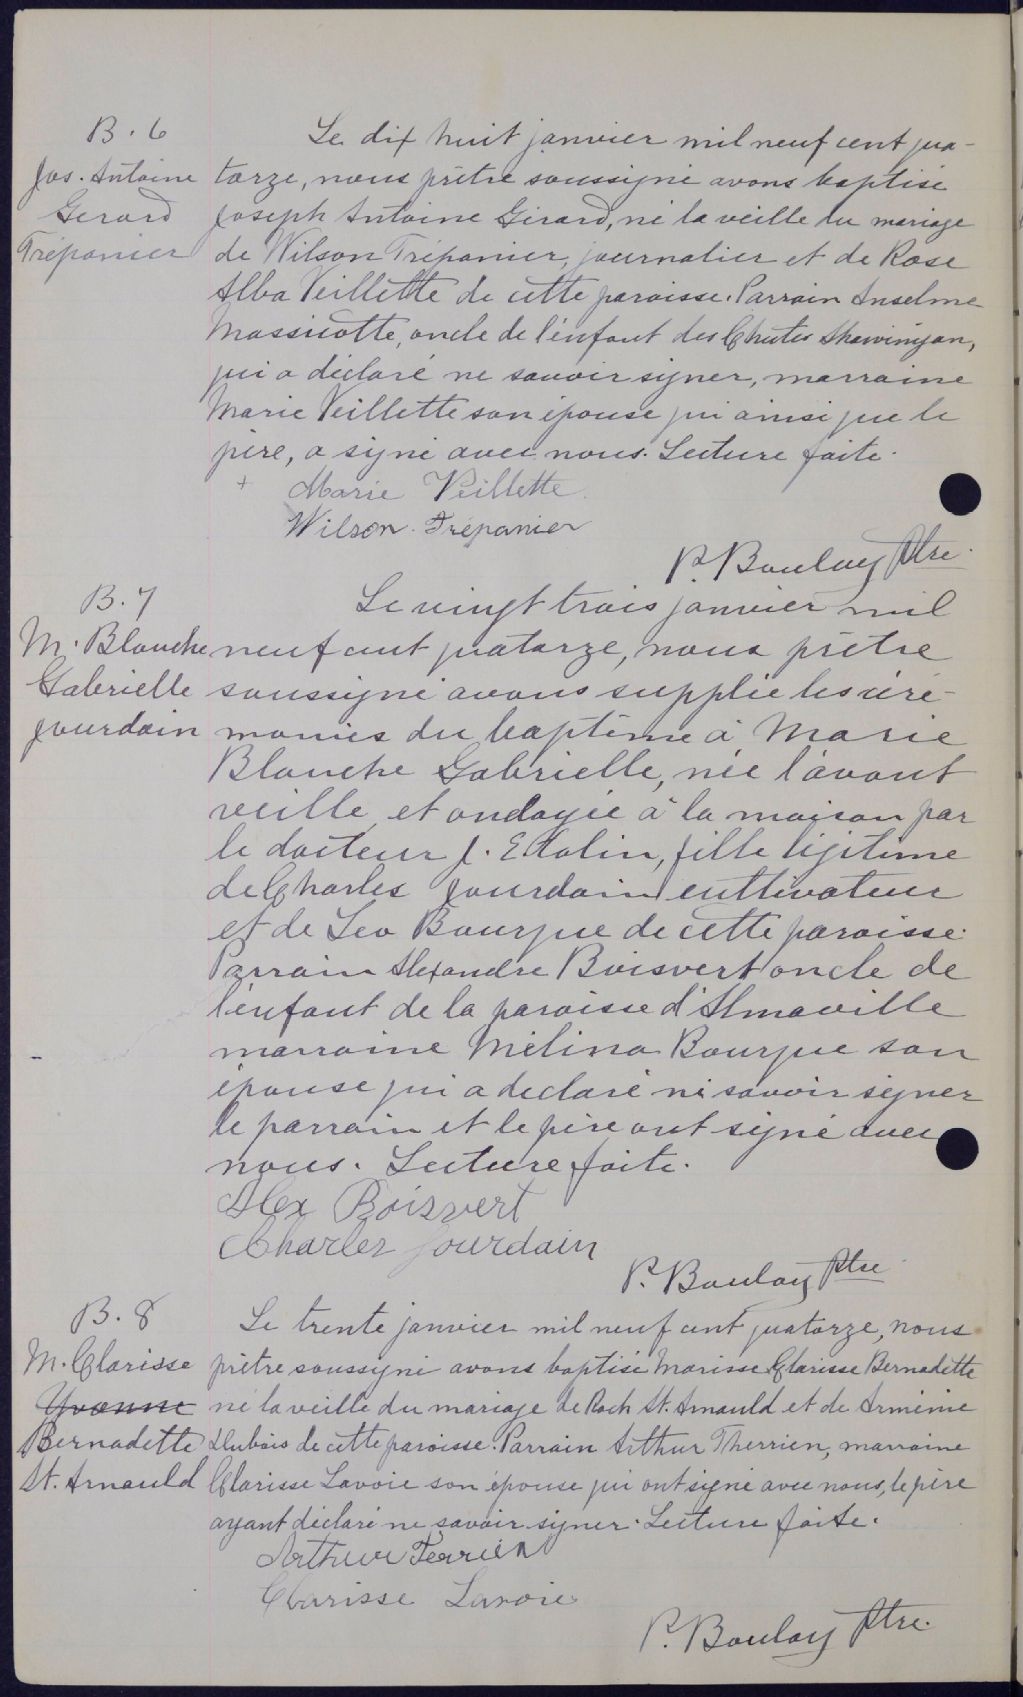 B. 6
Jos. Antoine
Gerard
Trépanier
Le dix huit janvier mil neuf cent qua-
torze, nous prêtre soussigné avons baptisé
Joseph Antoine Gérard, né la veille du mariage
de Wilson Trépanier, journalier et de Rose
Alba Veillette de cette paroisse. Parrain Anselme
Massicotte, oncle de l'enfant des Chutes Shawinigan,
qui a déclaré ne savoir signer, marraine
Marie Veillette son épouse qui ainsi que le
père, a signé avec nous. Lecture faite.
+ Marie Veillette
Wilson Trépanier
P. Boulay Ptre.
B. 7
M. Blanche
Gabrielle
Jourdain
Le vingt trois janvier mil
neuf cent quatorze, nous prêtre
soussigné avons supplié les céré-
monies du baptême à Marie
Blanche Gabrielle, née l'avant
veille, et ondoyée à la maison par
le docteur J. E. , fille légitime
de Charles Jourdain cultivateur
et de Lea Bourque de cette paroisse.
Parrain Alexandre Boisvert oncle de
l'enfant de la paroisse d'Almaville
marraine Mélina Bourque son
épouse qui a déclaré ne savoir signer
le parrain et le père ont signé avec
nous. Lecture faite.
Alex Boisvert
Charles Jourdain
P. Boulay Ptre
B. 8
M. Clarisse
Yvonne
Bernadette
St. Arnauld
Le trente janvier mil neuf cent quatorze, nous
prêtre soussigné avons baptisé Marisse Clarisse Bernadette
né la veille du mariage de Roch St. Arnauld et de Arménie
Dubois de cette paroisse. Parrain Arthur Therrien, marraine
Clarisse Lavoie son épouse qui ont signé avec nous, le père
ayant déclaré ne savoir signer. Lecture faite.
Arthur Terrien
Clarisse Lavoie
P. Boulay Ptre.